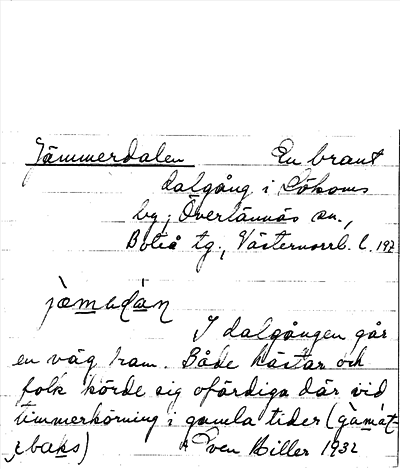 Jämmerdalen En brant
dalgång i Lökoms
by, Överlännäs sn.,
Boteå tg., Västernorrl. l. 192
jæmədàn
I dalgången går
en väg fram. Både hästar och
folk körde sig ofärdiga där vid
timmerkörning i gamla tider (gàmát-
baks) Sven Hiller 1932